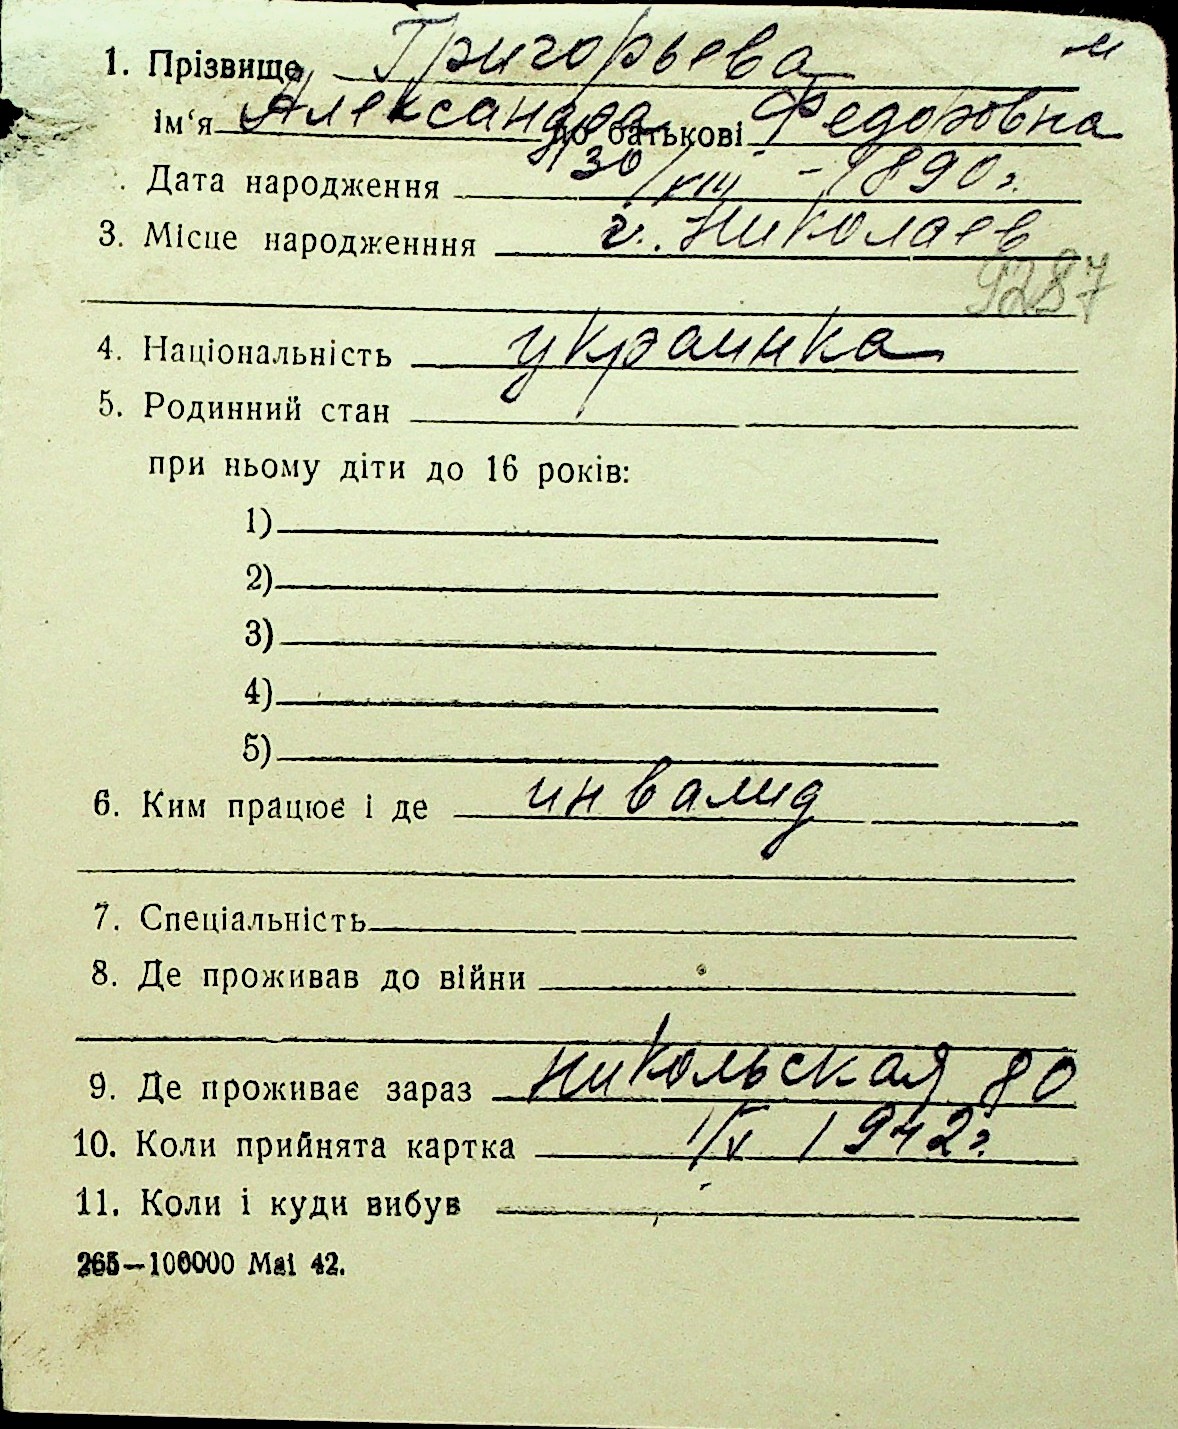 1. Прізвище Григорьева
ім‘я Александра по батькові Федоровна
Дата народження 30/VIII - 1890 г.
3. Місце народженння г. Николаев
9287
4. Національність украинка
5. Родинний стан
при ньому діти до 16 років:
1)
2)
3)
4)
5)
6. Ким працює і де инвалид
7. Спеціальність
8. Де проживав до війни
9. Де проживає зараз Никольская 80
10. Коли прийнята картка 1/V 1942 г.
11. Коли і куди вибув
265—100000 Mai 42.